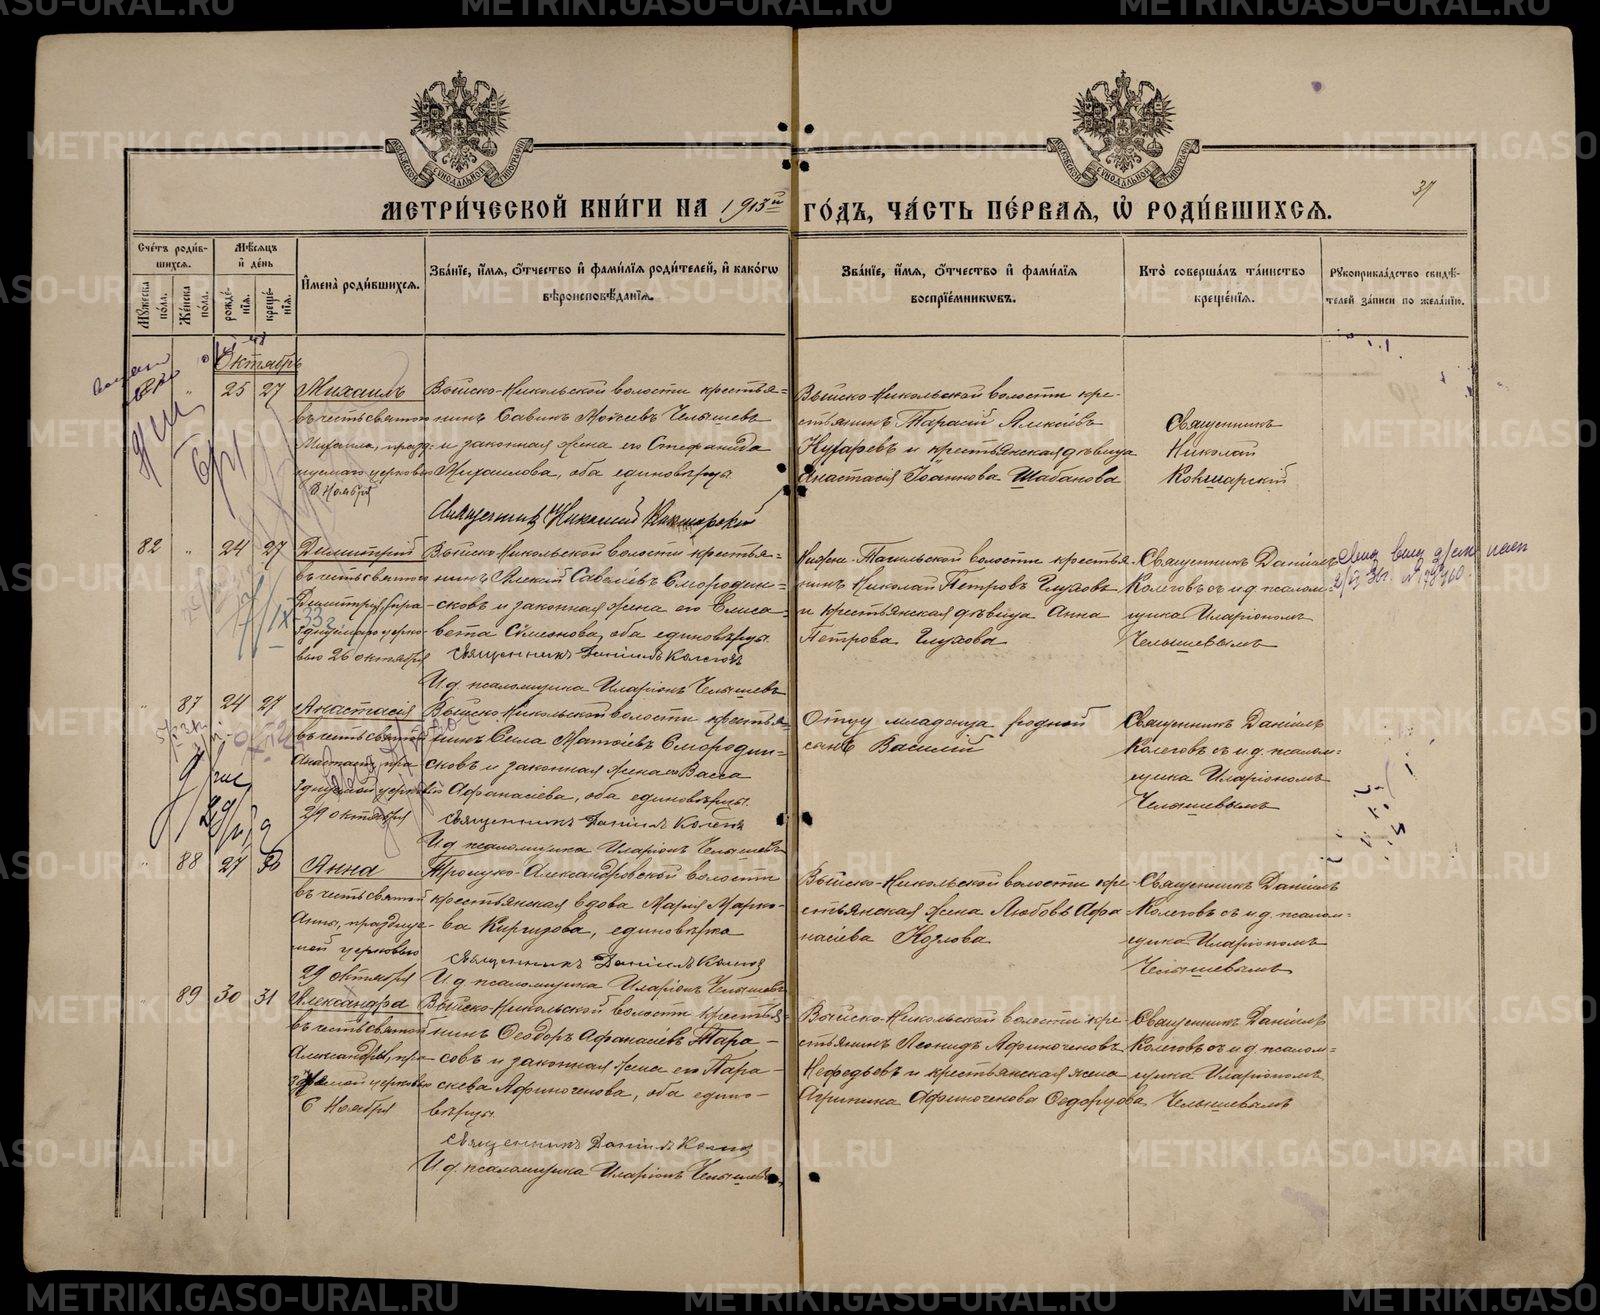 МЕТРИ́ЧЕСКОЙ КНИ́ГИ НА 1913й ГО́ДЪ, ЧА́СТЬ ПЕ́РВАЯ, Ѡ РОДИ́ВШИХСЯ.
37
Сче́тъ роди́в-
шихся.
Мѣ́сяцъ
и де́нь
Мꙋ́жеска по́ла.
Же́нска по́ла.
рожде́-
нія.
креще́-
нія.
Имена̀ роди́вшихся.
Зва́ніе, и́мя, о́тчество и фами́лія роди́телей, и како́гѡ
вѣроисповѣ́данія.
Зва́ніе, и́мя, о́тчество и фами́лія
воспріе́мникѡвъ.
Кто̀ соверша́лъ та́инство
креще́нія.
Рꙋкоприкла́дство свидѣ́-
телей за́писи по жела́нію.
Октябрь
25 27 Михаилъ
въ честь святого
Михаила, празд-
нуемаго церковью
8 Ноября
Выйско-Никольской волости крестья-
нинъ Савинъ Моисеевъ Челышевъ
и законная жена его Стефанида
Михаилова, оба единовѣрцы.
Священникъ Николай Кокшарскій
Выйско-Никольской волости кре-
стьянинъ Тарасій Алексѣевъ
и крестьянская дѣвица
Анастасія Іоаннова Шабанова
Священникъ
Николай
Кокшарскій
82 " 24 27 Димитрій
въ честь святого
Димитрія, пра-
зднуемаго церко-
вью 26 октября
Выйско-Никольской волости крестья-
нинъ Алексій Савеліевъ Смородин-
сковъ и законная жена его Елиса-
вета Сѵмеонова, оба единовѣрцы.
Священникъ Даніилъ Колеговъ
И.д. псаломщика Иларіонъ Челышевъ
Нижне-Тагильской волости крестья-
нинъ Николай Петровъ Глуховъ
и крестьянская дѣвица Анна
Петрова Глухова
Священникъ Даніилъ
Колеговъ съ и.д. псалом-
щика Иларіономъ
Челышевымъ
" 87 24 27 Анастасія
въ честь святой
Анастасіи, пра-
зднуемой церковью
29 октября
Выйско-Никольской волости крестья-
нинъ Сила Матѳіевъ Смородин-
сковъ и законная жена его Васса
Афанасіева, оба единовѣрцы.
Священникъ Даніилъ Колеговъ
И.д. псаломщика Иларіонъ Челышевъ
Отцу младенца родной
сынъ Василій
Священникъ Даніилъ
Колеговъ съ и.д. псалом-
щика Иларіономъ
Челышевымъ
" 88 27 30 Анна
въ честь святой
Анны, празднуе-
мой церковью
29 октября
Троицко-Александровской волости
крестьянская вдова Марія Марко-
ва Киргизова, единовѣрка
Священникъ Даніилъ Колеговъ
И.д. псаломщика Иларіонъ Челышевъ
Выйско-Никольской волости кре-
стьянская жена Любовь Афа-
насіева Козлова
Священникъ Даніилъ
Колеговъ съ и.д. псалом-
щика Иларіономъ
Челышевымъ
89 30 31 Александра
въ честь святой
Александры, пра-
зднуемой церковью
6 Ноября
Выйско-Никольской волости крестья-
нинъ Ѳеодоръ Афанасіевъ Тара-
совъ и законная жена его Пара-
скева Афиногенова, оба едино-
вѣрцы.
Священникъ Даніилъ Колеговъ
И.д. псаломщика Иларіонъ Челышевъ
Выйско-Никольской волости кре-
стьянинъ Леонидъ Афиногеновъ
Нефедьевъ и крестьянская жена
Агрипина Афиногенова Сидорцова
Священникъ Даніилъ
Колеговъ съ и.д. псалом-
щика Иларіономъ
Челышевымъ
METRIKI.GASO-URAL.RU